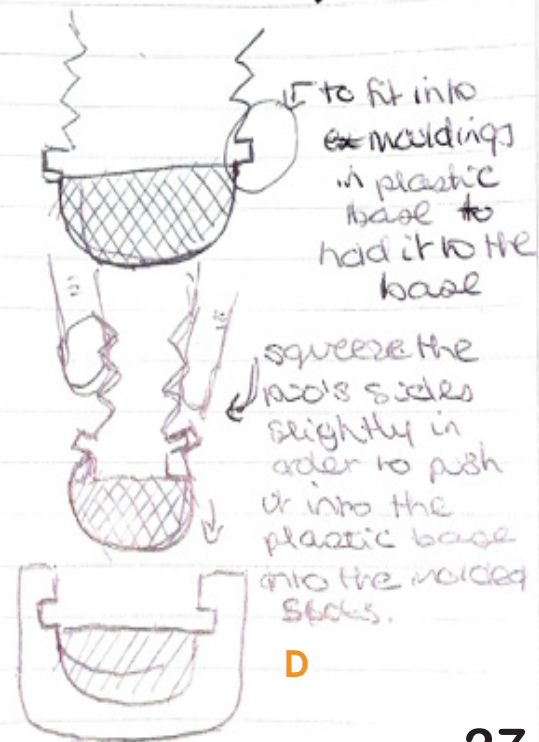 to fit into
ex mouldings
in plastic
base to
hold it to the
base
squeeze the
sides
slightly in
order to push
it into the
plastic base
into the molded
spots.
D
27